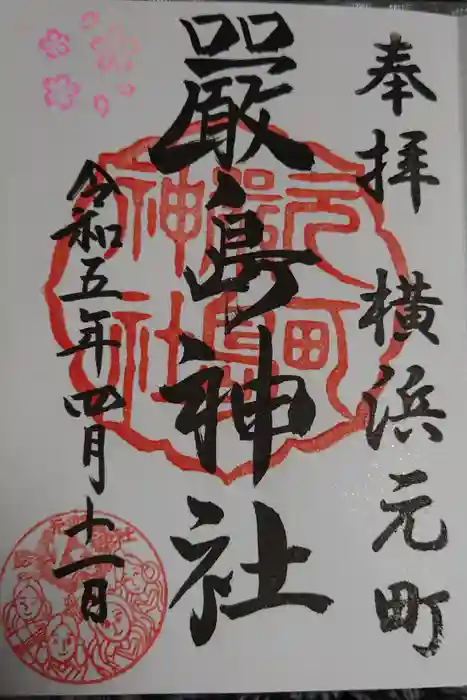 奉拝 横浜元町
嚴島神社
令和五年四月十一日
元町
嚴島
神社